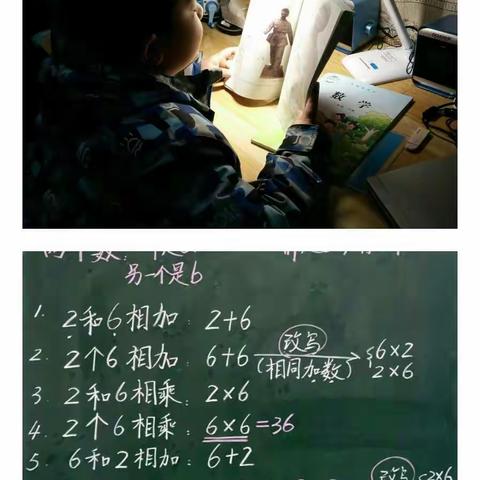 数学
两个数:一个是a
另一个是b
1. 2和6相加: 2+6
2. 2个6相加: 6+6 改写 (相同加数) {6×2 2×6
3. 2和6相乘: 2×6
4. 2个6相乘: 6×6=36
5. 6和2相加: 6+2
改写 2×6